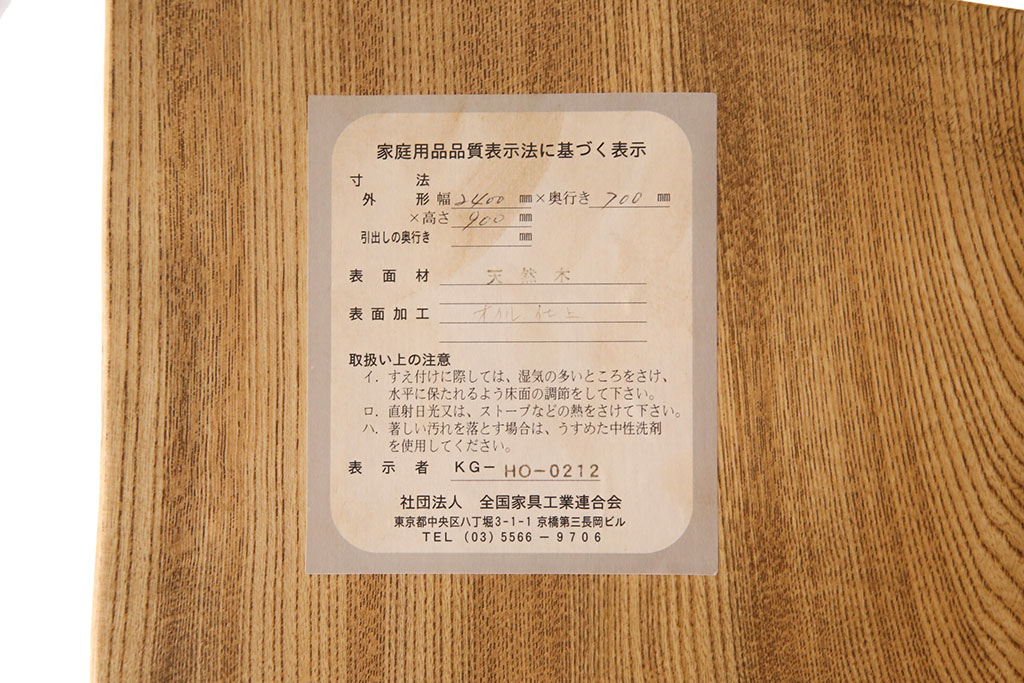 家庭用品品質表示法に基づく表示
寸法
外形 幅 2400 ㎜×奥行き 700 ㎜
×高さ 900 ㎜
引出しの奥行き ㎜
表面材 天然木
表面加工 オイル仕上
取扱い上の注意
イ．すえ付けに際しては、湿気の多いところをさけ、
水平に保たれるよう床面の調節をして下さい。
ロ．直射日光又は、ストーブなどの熱をさけて下さい。
ハ．著しい汚れを落とす場合は、うすめた中性洗剤
を使用してください。
表示者 KG－HO-0212
社団法人 全国家具工業連合会
東京都中央区八丁堀3-1-1 京橋第三長岡ビル
TEL (03) 5566－9706